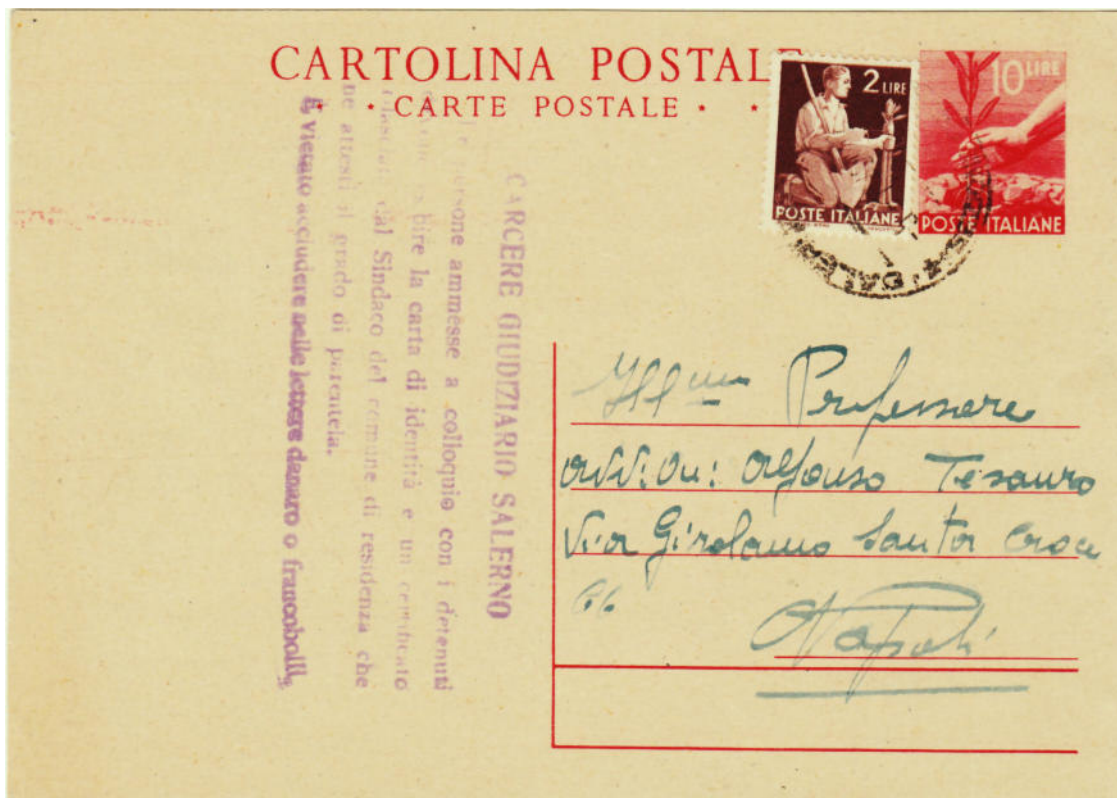 CARTOLINA POSTALE
· · CARTE POSTALE · ·
2 LIRE
POSTE ITALIANE
10 LIRE
POSTE ITALIANE
CARCERE GIUDIZIARIO SALERNO
persone ammesse a colloquio con i detenuti
la carta di identità e un certificato
dal Sindaco del comune di residenza che
ne attesti il grado di parentela.
È vietato accludere nelle lettere danaro o francobolli.
Ill.mo Professore
Alfonso Tesauro
Via Girolamo Santa Croce
Napoli